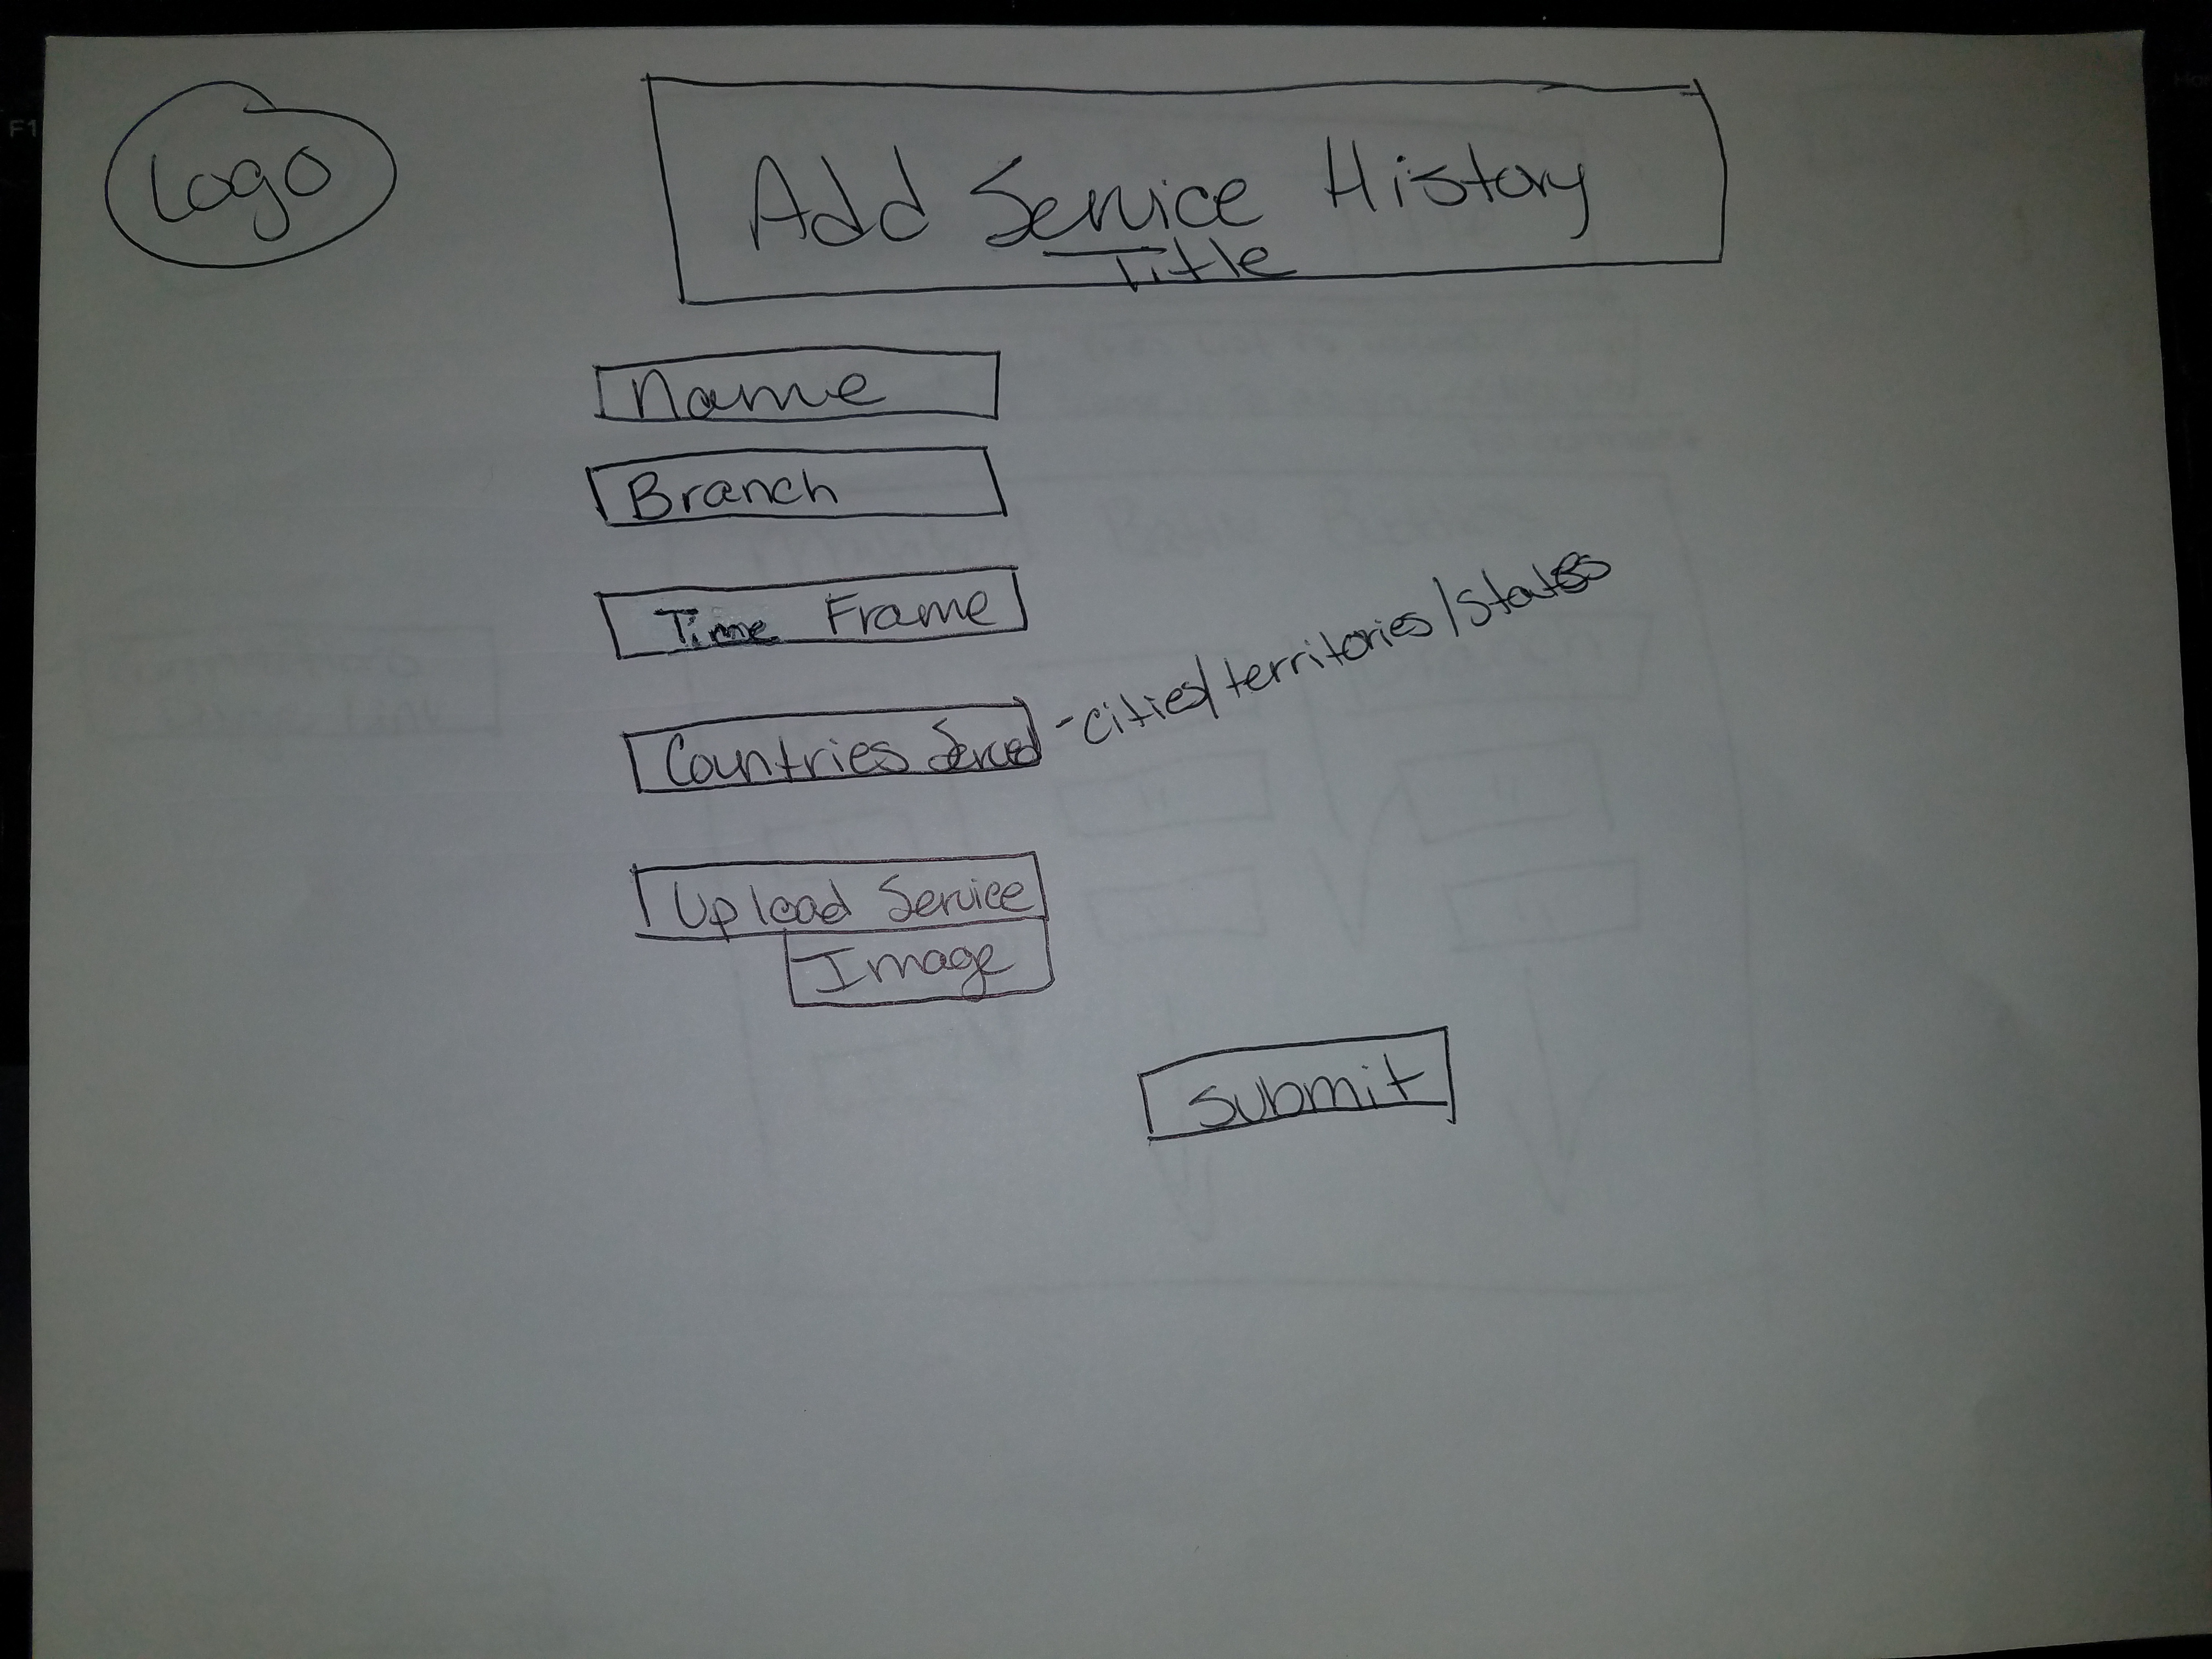 Logo
Add Service History
Title
Name
Branch
Time Frame
Countries Served - cities/territories/states
Upload Service
Image
Submit
F1